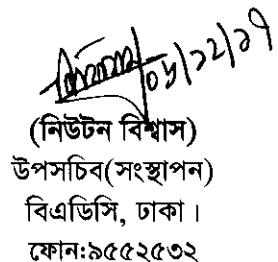 (নিউটন বিশ্বাস)
উপসচিব(সংস্থাপন)
বিএডিসি, ঢাকা।
ফোন:৯৫৫২৫৩২